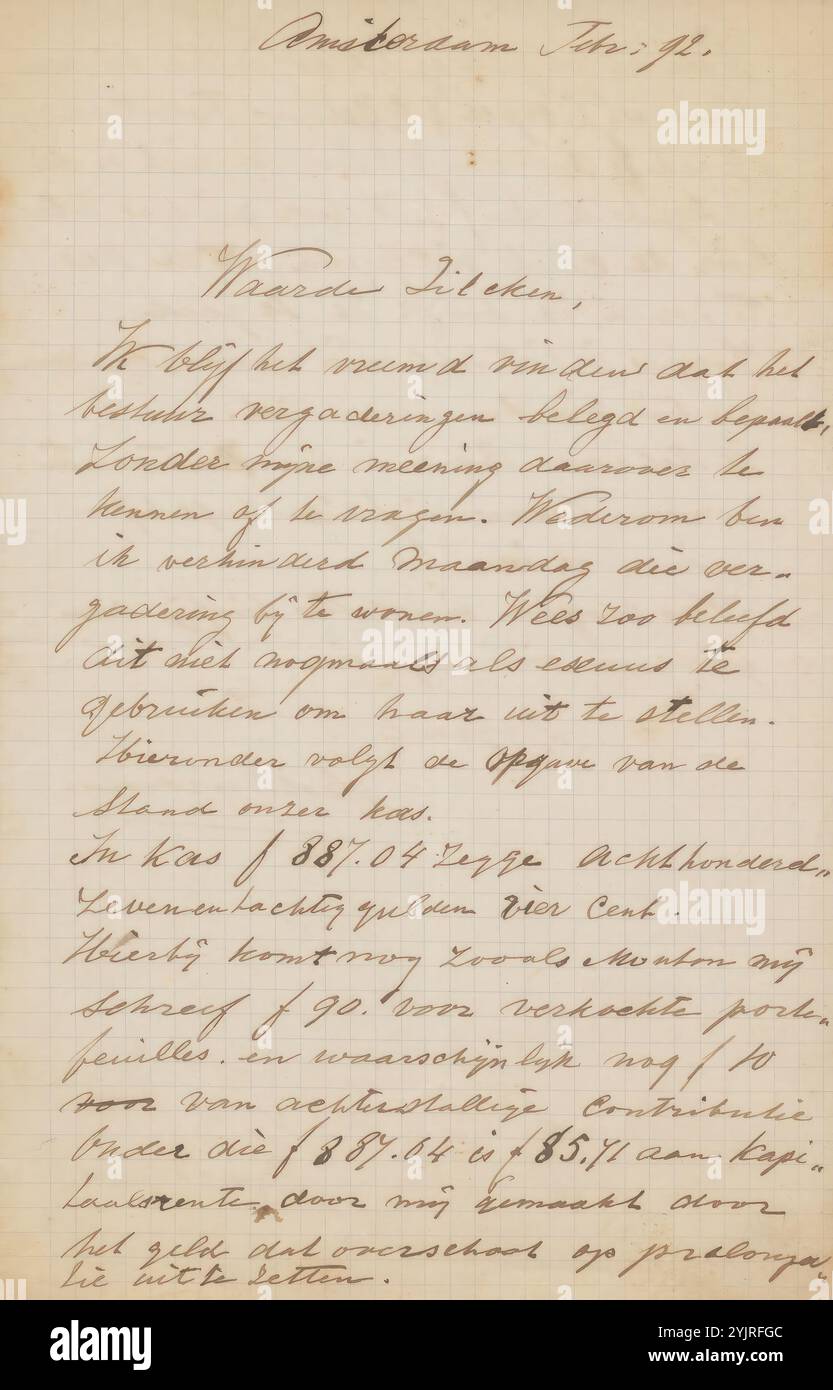 Amsterdam Febr: 92.
Waarde Zilcken,
Ik blijf het vreemd vinden dat het
bestuur vergaderingen belegd en bepaalt,
zonder mijne meening daarover te
kennen of te vragen. Wederom ben
ik verhinderd Maandag die ver-
gadering bij te wonen. Wees zoo beleefd
dit niet nogmaals als excuus te
gebruiken om haar uit te stellen.
Hieronder volgt de opgave van de
stand onzer kas.
In Kas f 887.04 zegge Achthonderd„
zevenentachtig gulden vier Cent.
Hierbij komt nog zooals Mouton mij
schreef f 90. voor verkochte porte„
feuilles. en waarschijnlijk nog f 10
voor van achterstallige Contributie
Onder die f 887.04 is f 85.71 aan Kapi„
taalsrente door mij gemaakt door
het geld dat overschoot op prolonga„
tie uit te zetten.
alamy
a
a
a
alamy
alamy
a
a
a
alamy
alamy
Image ID: 2YJRFGC
www.alamy.com